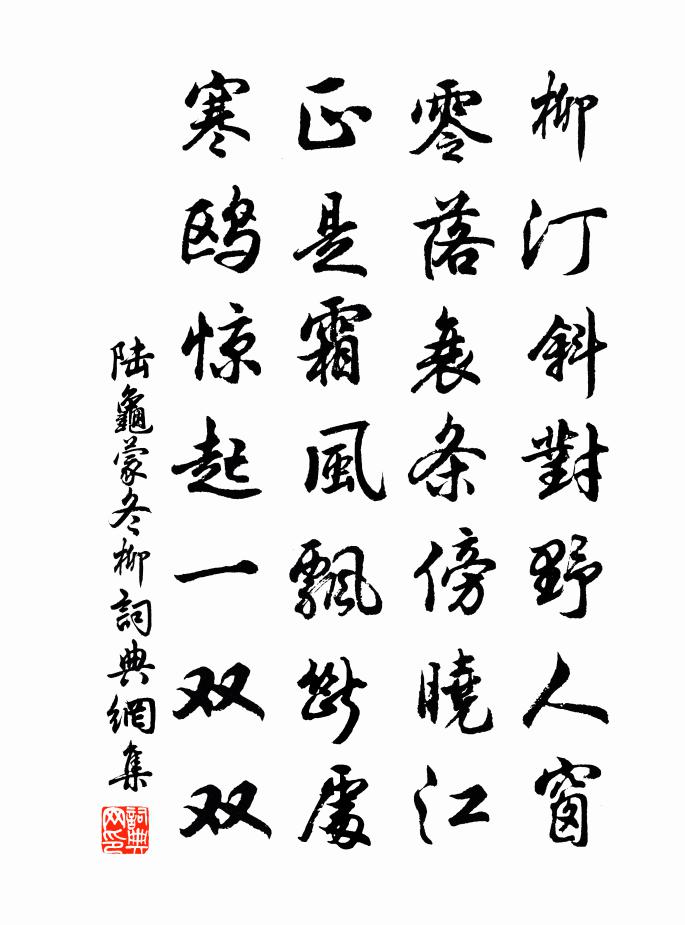 柳汀斜對野人窗
零落衰条傍曉江
正是霜風飄斷處
寒鸥惊起一双双
陆龜蒙冬柳詞典網集
詞典网印